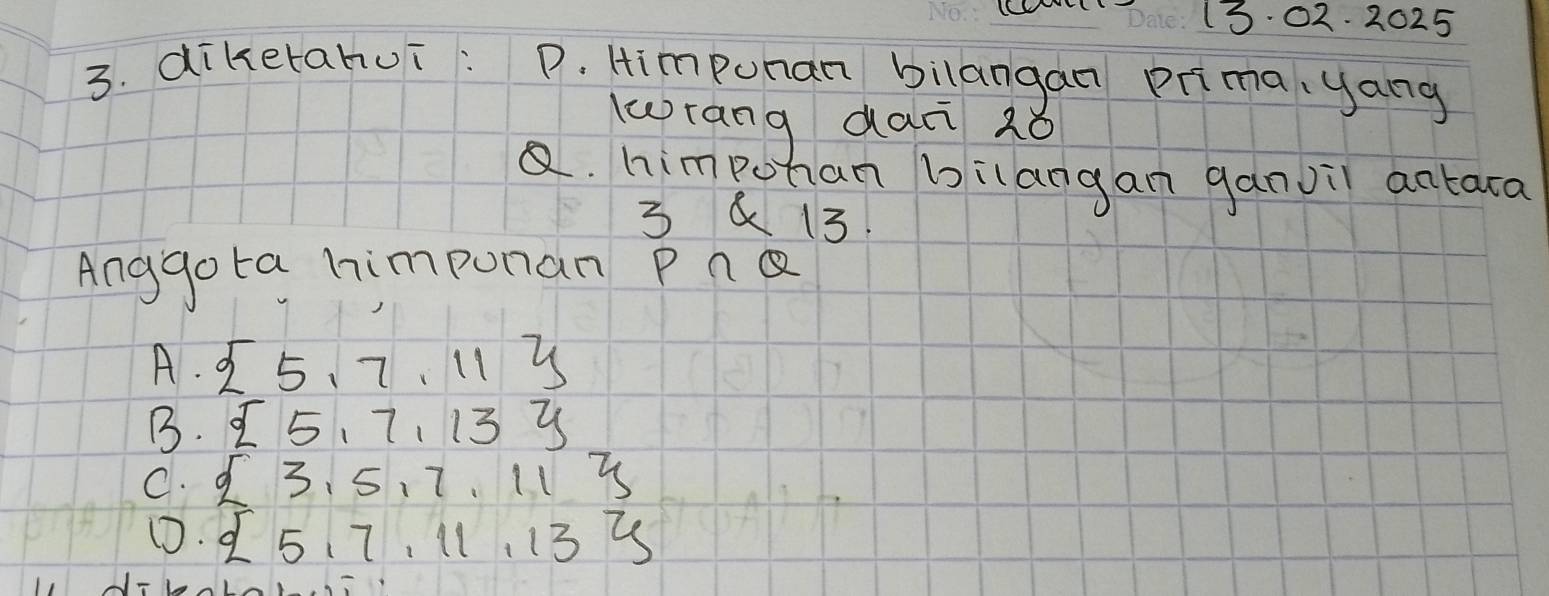 No.: Date: 13.02.2025
3. diketahui : P. Himpunan bilangan prima, yang
kurang dari 20
Q. himpunan bilangan ganjil antara
3 & 13.
Anggota himpunan P ∩ Q
A. { 5, 7, 11 }
B. { 5, 7, 13 }
C. { 3, 5, 7, 11 }
D. { 5, 7, 11, 13 }